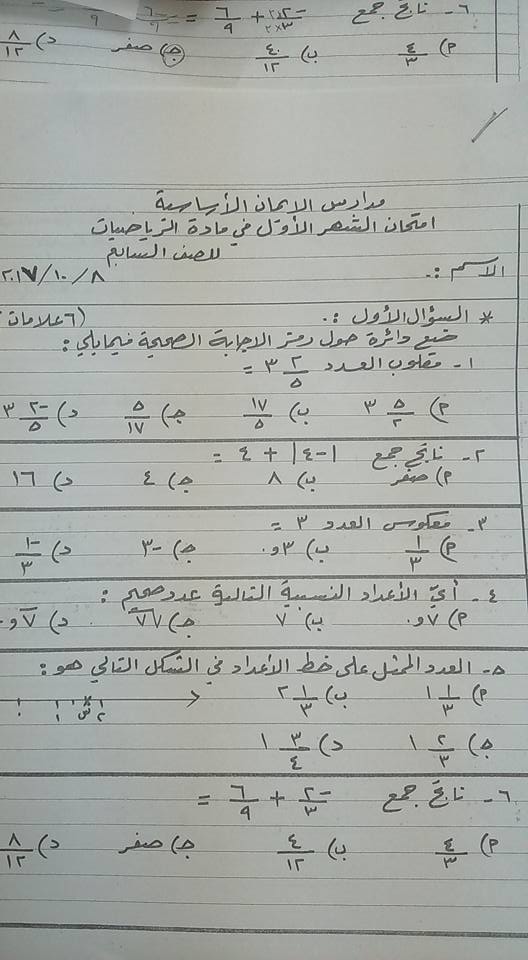 ٦- ناتج جمع -٢×٣/٣×٣ + ٦/٩ =
م) ٤/٣ ب) ٤/١٢ ج) صفر د) ٨/١٢
مدارس الإيمان الأساسية
امتحان الشهر الأول في مادة الرياضيات
للصف السابع
الاسم :. ٢٠١٧/١٠/٨
* السؤال الأول :. (٦ علامات
ضع دائرة حول رمز الاجابة الصحيحة فيما يلي :
١- مقلوب العدد ٣ ٢/٥ =
م) ٣ ٥/٢ ب) ١٧/٥ ج) ٥/١٧ د) ٣ -٢/٥
٢- ناتج جمع |-٤| + ٤ =
م) صفر ب) ٨ ج) ٤ د) ١٦
٣- معكوس العدد ٣ =
م) ١/٣ ب) ٣و٠ ج) -٣ د) -١/٣
٤- أيّ الأعداد النسبية التالية عدد صحيح :
م) ٧و٠ ب) ٧ ج) ٧١ د) ٧و٠
٥- العدد الممثل على خط الأعداد في الشكل التالي هو :
م) ١ ١/٣ ب) ٢ ١/٣
٠ ١ س ٢
ج) ١ ٢/٣ د) ١ ٣/٤
٦- ناتج جمع -٢/٣ + ٦/٩ =
م) ٤/٣ ب) ٤/١٢ ج) صفر د) ٨/١٢